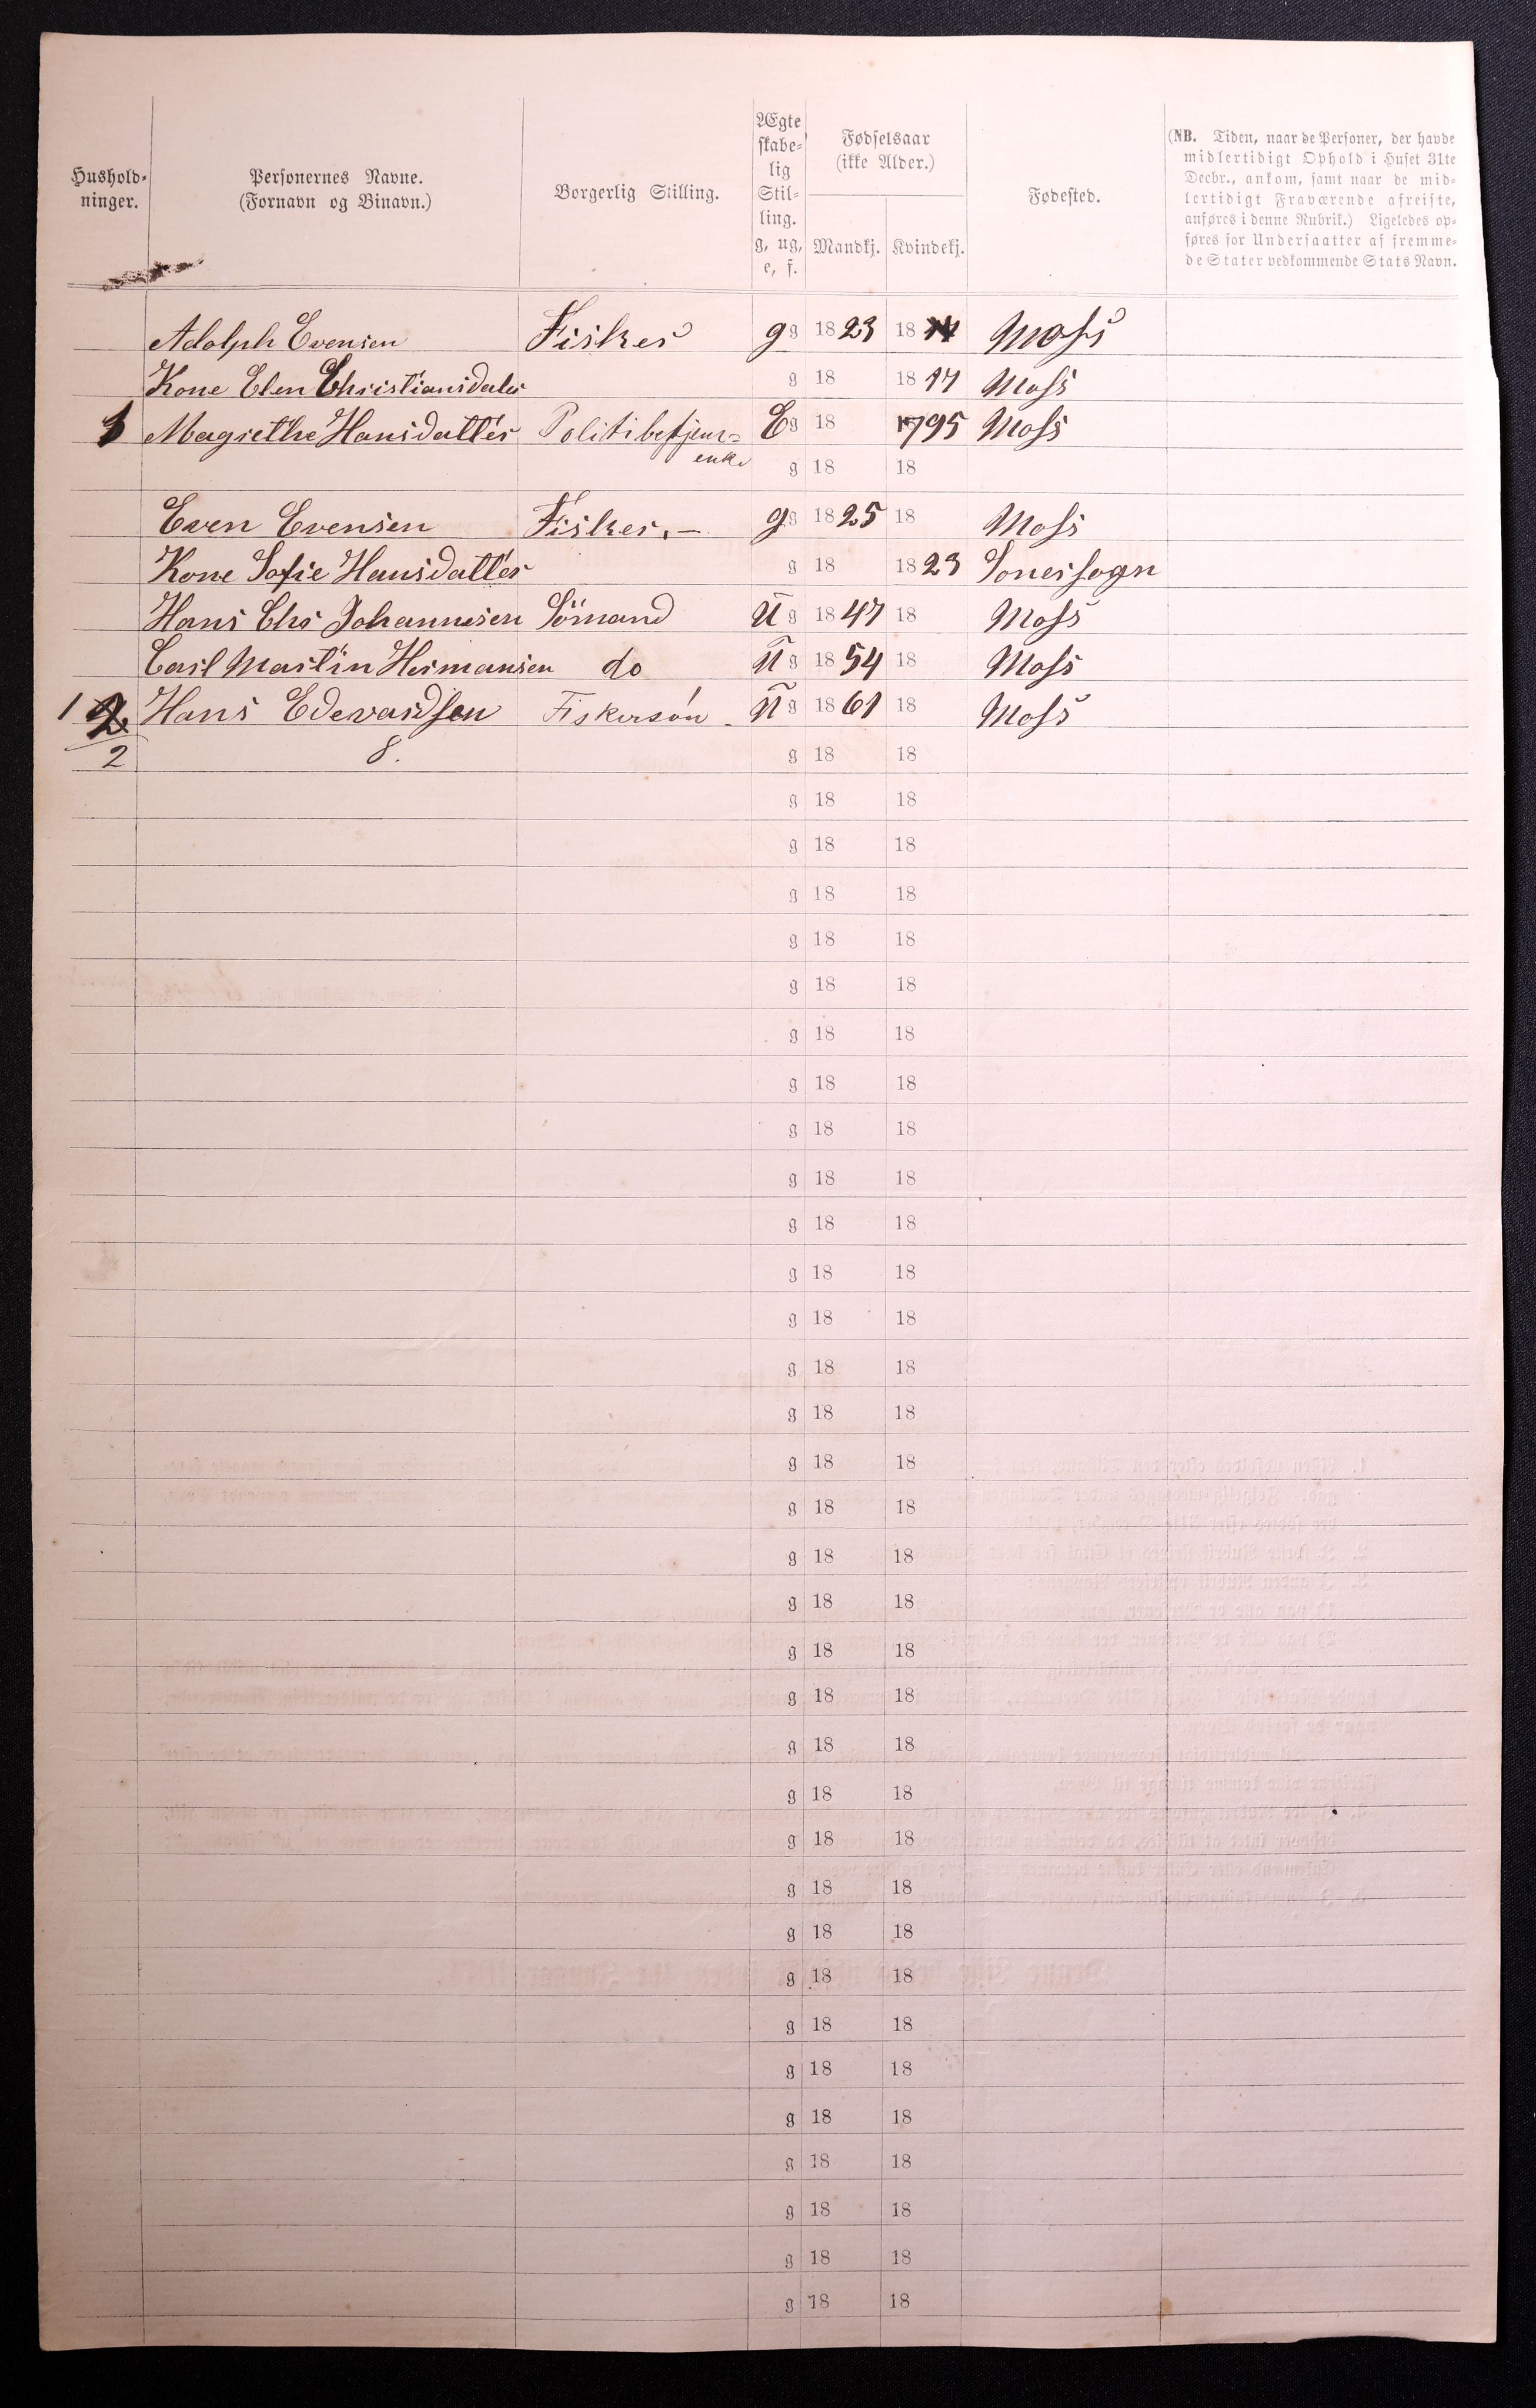 Hushold-
ninger.
Personernes Navne.
(Fornavn og Binavn.)
Borgerlig Stilling.
Ægte
skabe-
lig
Stil-
ling.
g, ug,
e, f.
Fødselsaar
(ikke Alder.)
Mandkj. Kvindekj.
Fødested.
(NB. Tiden, naar de Personer, der havde
midlertidigt Ophold i Huset 31te
Decbr., ankom, samt naar de mid-
lertidigt Fraværende afreiste,
anføres i denne Rubrik.) Ligeledes op-
føres for Undersaatter af fremme-
de Stater vedkommende Stats Navn.
Adolph Evensen Fisker g g 1823 18 Moss
Kone Elen Christiansdatter g 18 1817 Moss
1 Magrethe Hansdatter Politibetjent= E g 18 1795 Moss
enke g 18 18
Even Evensen Fisker.— g g 1825 18 Moss
Kone Sofie Hansdatter g 18 1823 Soner sogn
Hans Chr Johannesen Sömand U g 1847 18 Moss
Carl Martin Hermansen do U g 1854 18 Moss
1 2 Hans Edevardsen Fiskersön U g 1861 18 Moss
2 8. g 18 18
g 18 18
g 18 18
g 18 18
g 18 18
g 18 18
g 18 18
g 18 18
g 18 18
g 18 18
g 18 18
g 18 18
g 18 18
g 18 18
g 18 18
g 18 18
g 18 18
g 18 18
g 18 18
g 18 18
g 18 18
g 18 18
g 18 18
g 18 18
g 18 18
g 18 18
g 18 18
g 18 18
g 18 18
g 18 18
g 18 18
g 18 18
g 18 18
g 18 18